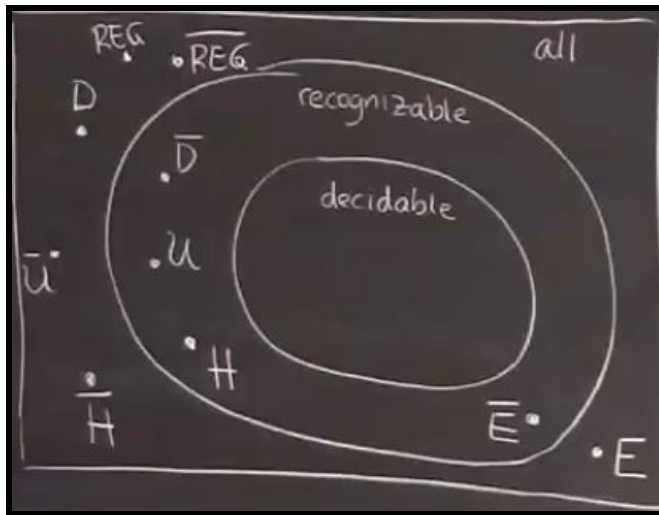 REG
R̅E̅G̅
all
recognizable
D
D̅
decidable
U̅
U
H
H̅
E̅
E